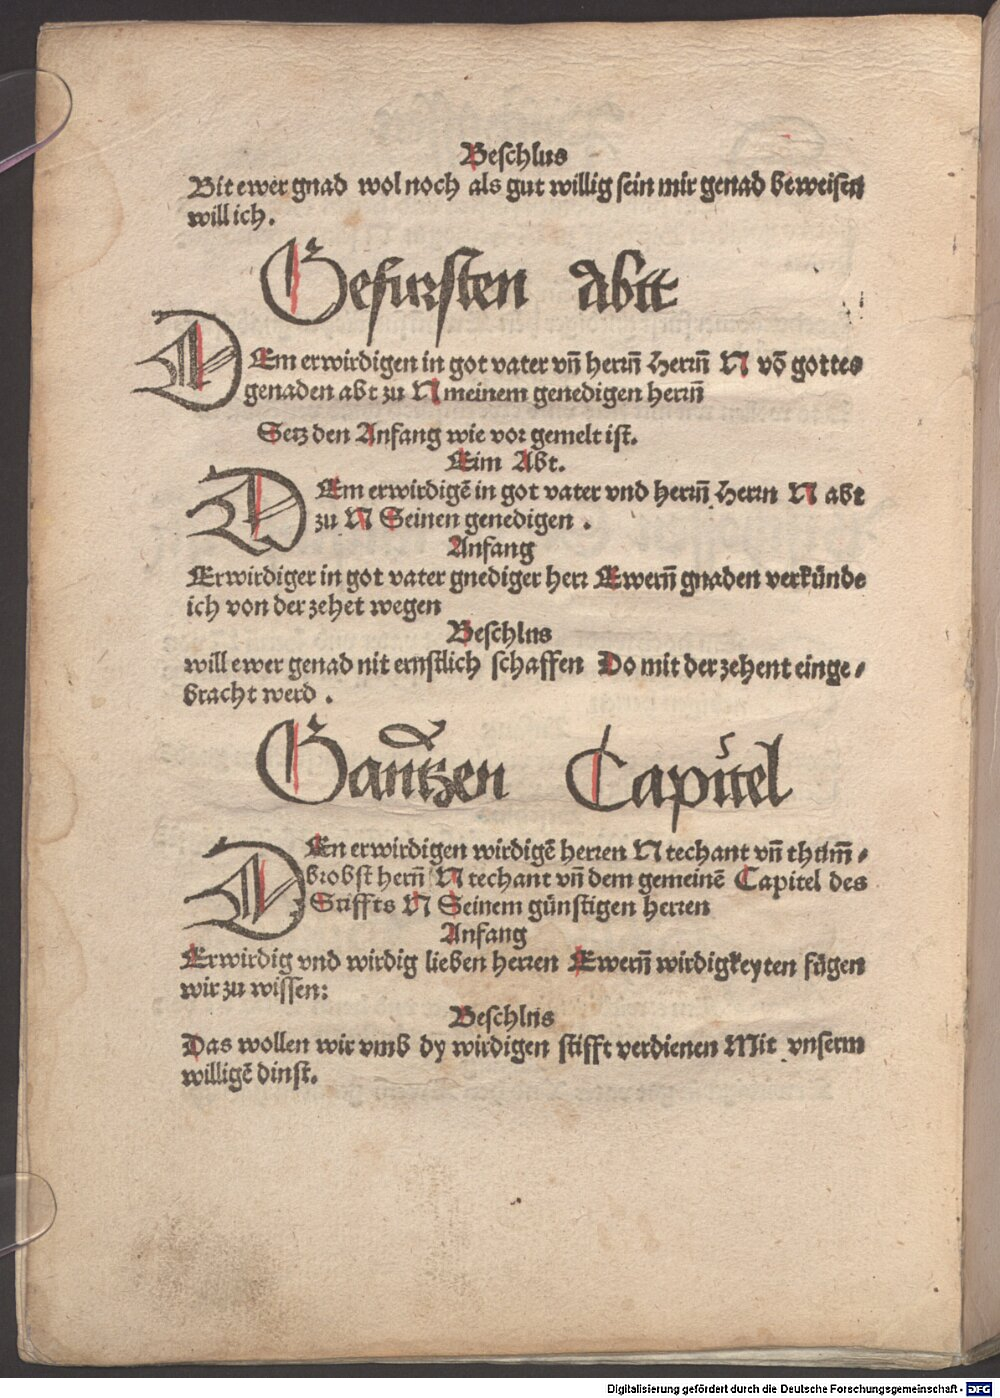 Beschlus
Bit ewer gnad wol noch als gut willig sein mir genad beweisen
will ich.
Gefursten Abtt
DEm erwirdigen in got vater vñ herrñ herrñ N võ gottes
genaden abt zu N meinem genedigen herrñ
Setz den Anfang wie vor gemelt ist.
Eim Abt.
DEm erwirdigẽ in got vater vnd herrñ herrn N abt
zu N Seinen genedigen .
Anfang
Erwirdiger in got vater gnediger herr Ewerñ gnaden verkünde
ich von der zehet wegen
Beschlus
will ewer genad nit ernstlich schaffen Do mit der zehent einge⸗
bracht werd .
Gantzen Capitel
DEn erwirdigen wirdigẽ herren N techant vñ thum̃⸗
brobst herñ N techant vñ dem gemeinẽ Capitel des
Stiffts N Seinem günstigen herren
Anfang
Erwirdig vnd wirdig lieben herren Ewerñ wirdigkeyten fůgen
wir zu wissen:
Beschlus
Das wollen wir vmb dy wirdigen stifft verdienen Mit vnserm
willigẽ dinst.
Digitalisierung gefördert durch die Deutsche Forschungsgemeinschaft - DFG